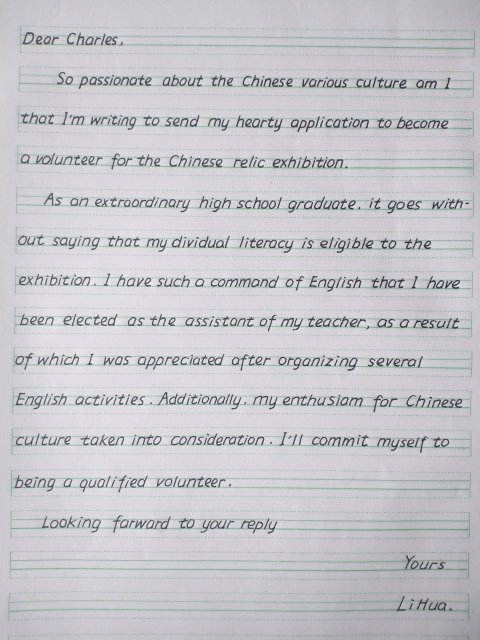 Dear Charles,
So passionate about the Chinese various culture am I
that I'm writing to send my hearty application to become
a volunteer for the Chinese relic exhibition.
As an extraordinary high school graduate, it goes with-
out saying that my dividual literacy is eligible to the
exhibition. I have such a command of English that I have
been elected as the assistant of my teacher, as a result
of which I was appreciated after organizing several
English activities. Additionally, my enthusiam for Chinese
culture taken into consideration. I'll commit myself to
being a qualified volunteer.
Looking farward to your reply
Yours
Li Hua.